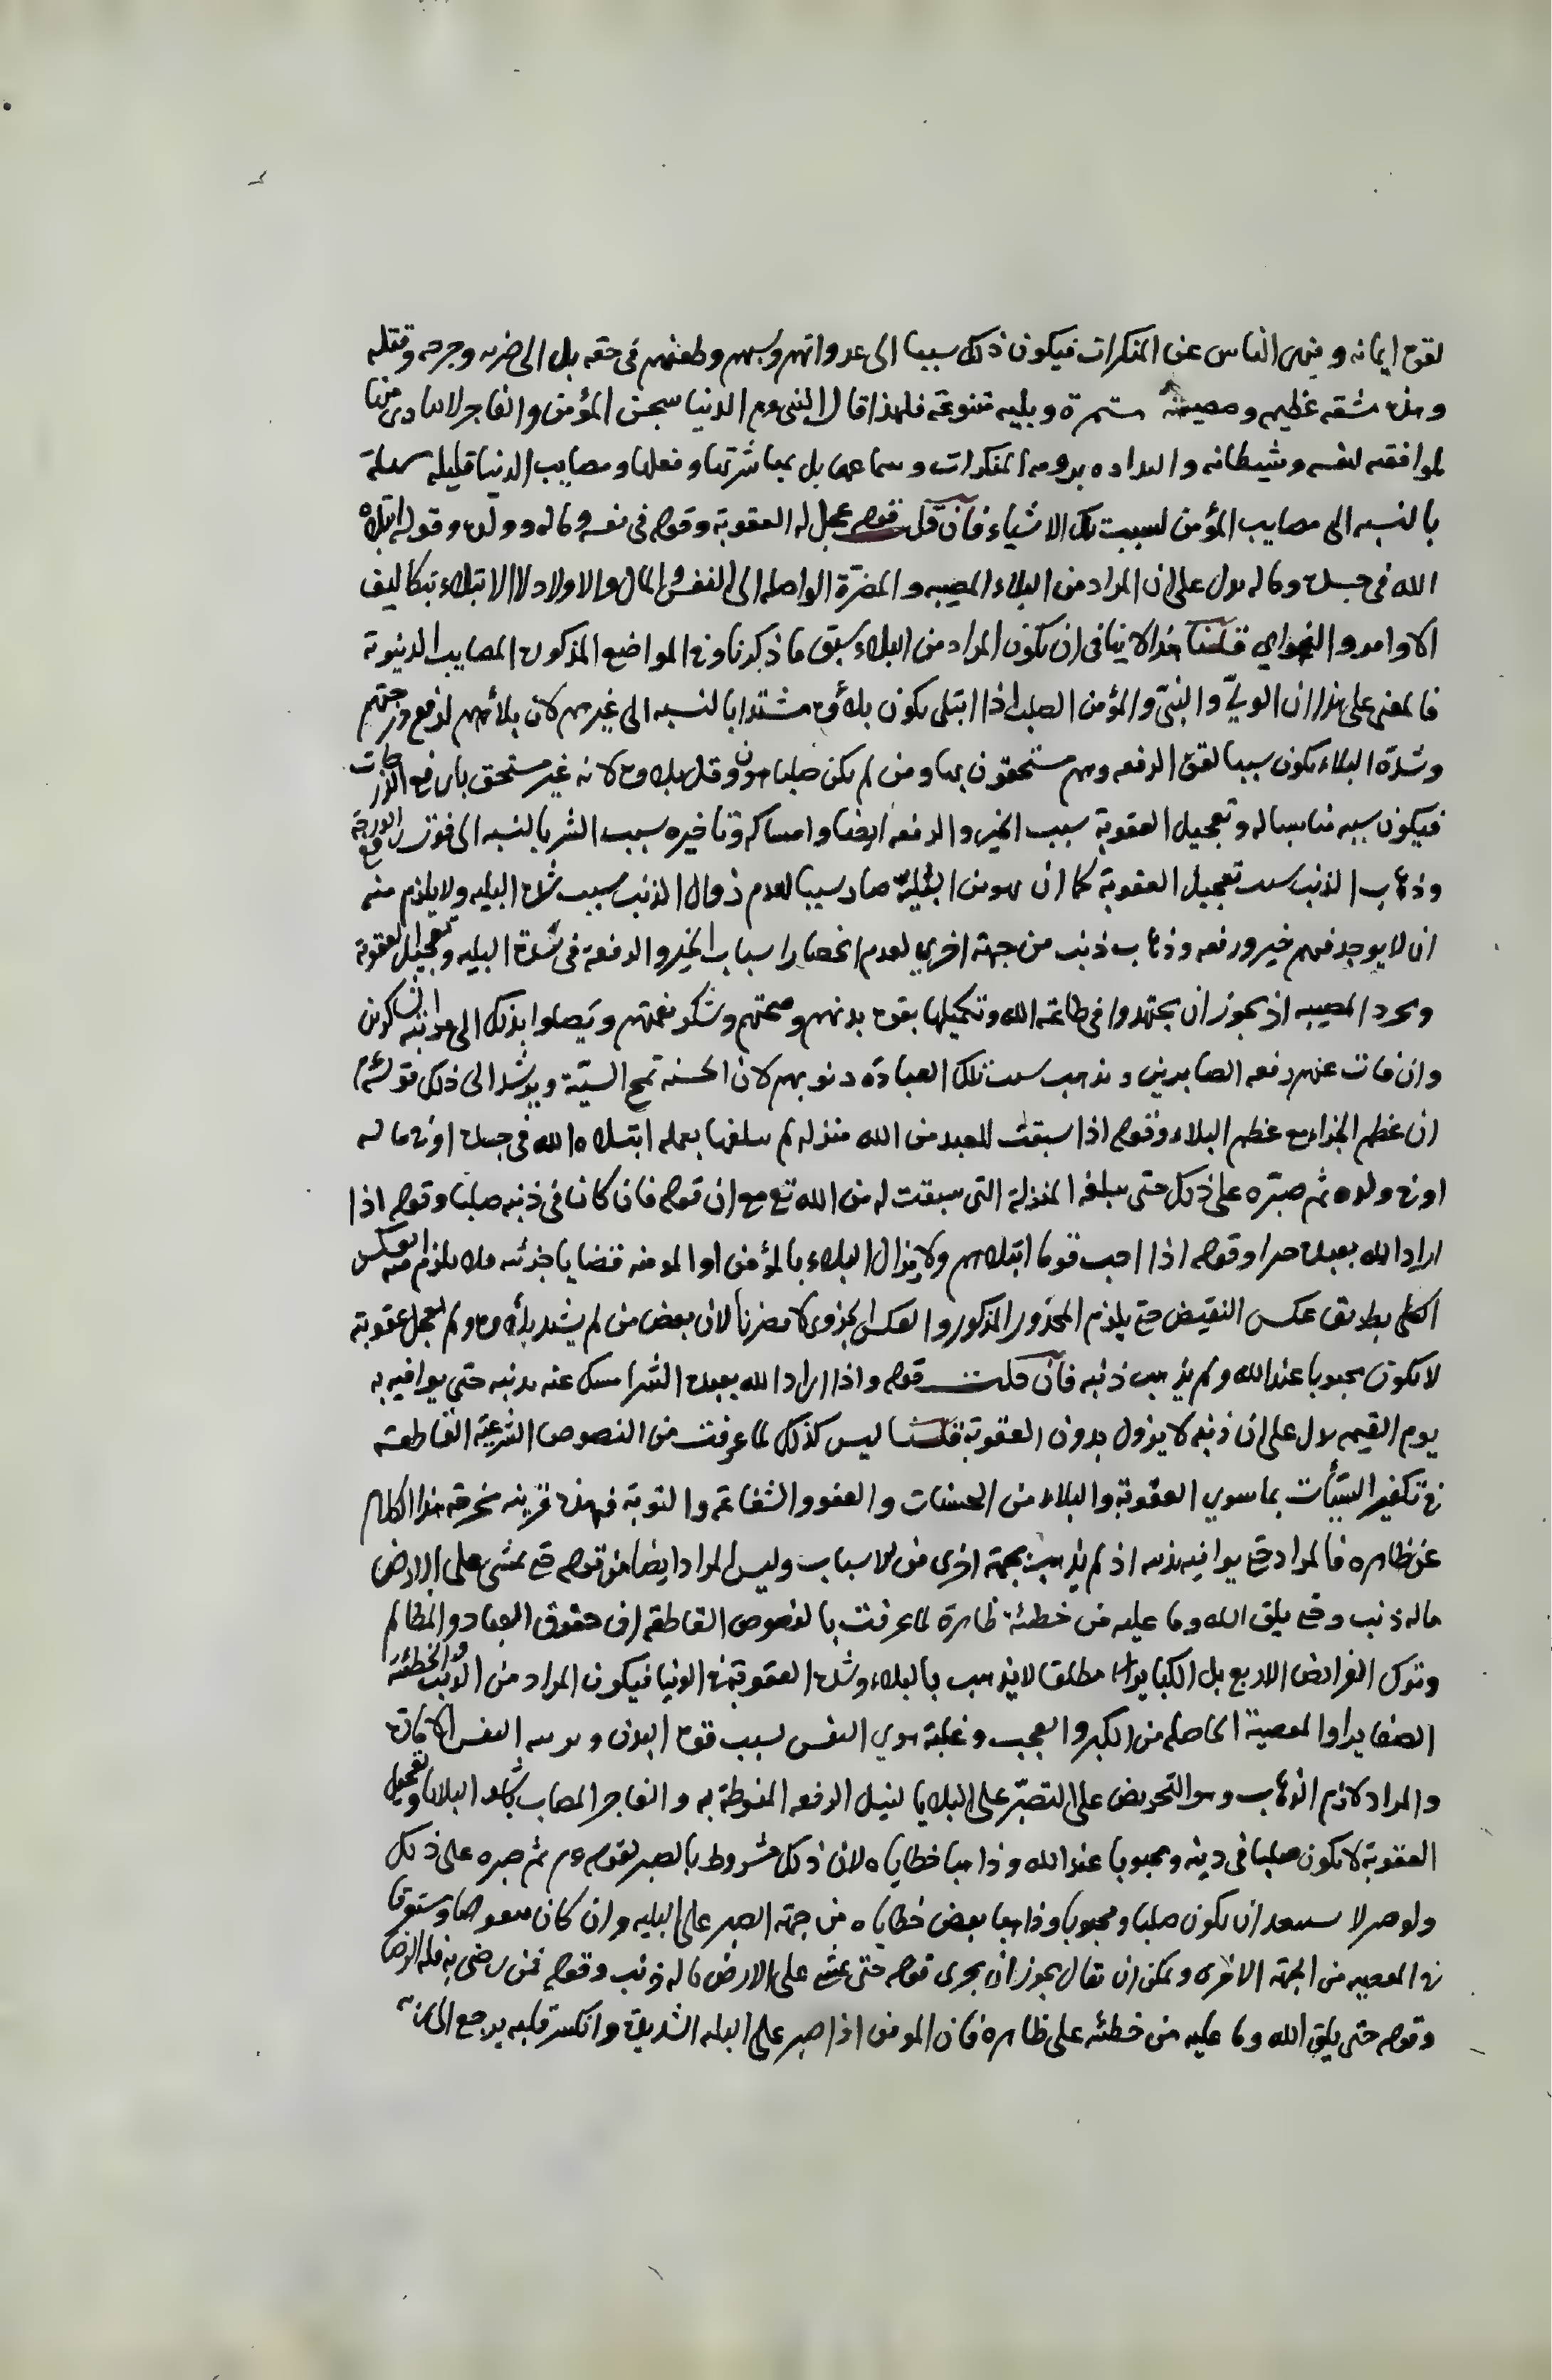 لقوة ايمانه وينهى الناس عن المنكرات فيكون ذلك سببا الى عداوتهم وسبهم وطعنهم فى حقه بل الى ضربه وجرحه وقتله
وهذه مشقه عظيمه ومصيبة مستمرة وبليه متنوعة فلهذا قال النبى عم الدنيا سجن المؤمن والفاجر لا يتاذى منها
لموافقته لنفسه وشيطانه والتذاذه برويه المنكرات وسماعها بل بمباشرتها وفعلها ومصايب الدنيا قليله سهلة
بالنسبه الى مصايب المؤمن لسبب تلك الاشياء فان قلت قوله عجل له العقوبة وقوله فى نفسه وماله وولده وقوله ابتلاه
الله فى جسده وماله يدل على ان المراد من البلاء المصيبه والمضرّة الواصله الى النفس والمال والاولاد لا الابتلاء بتكاليف
الاوامر والنواهي قلنا هذا لا ينافى ان يكون المراد من البلاء سبق ما ذكرنا وفى المواضع المذكورة المصايب الدنيوية
فالمعنى على هذا ان الوليّ والنبىّ والمؤمن الصلب اذا ابتلى يكون بلاؤه مشتدا بالنسبه الى غيرهم لان بلائهم لرفع درجتهم
وشدة البلاء يكون سببا لقوة الرفعه وهم مستحقون بها ومن لم يكن صلبا هون وقل بلاوه لانه غير مستحق بارفع الدرجات
فيكون سببه مناسبا له وتعجيل العقوبة سبب الخير والرفعه ايضا وامساكه وتاخيره سبب الشر بالنسبه الى فوت رفع الدرجة
وذهاب الذنب بسبب تعجيل العقوبة كما ان هوين البليّة صار سببا لعدم زوال الذنب بسبب شدة البليه ولا يلزم منه
ان لا يوجد فيهم خير ورفعه وذهاب ذنب من جهة اخري لعدم انحصار اسباب الخير والرفعة فى شدة البليه وتعجيل العقوبة
ومجرد المصيبه اذ يجوز ان يجتهدوا فى طاعة الله وتكميلها بقوة بدنهم وصحتهم وشكر نعمتهم ويصلوا بذلك الى مراتب الشاكرين
وان فات عنهم رفعه الصابرين ويذهب بسبب تلك العبادة ذنوبهم لان الحسنه تمح السيّة ويرشد الى ذلك قوله عم
ان عظم الجزاء مع عظم البلاء وقوله اذا سبقت للعبد من الله منزله لم يبلغها بعمله ابتلاه الله فى جسده او فى ماله
او فى ولده ثم صبّره على ذلك حتى يبلغه المنزلة التى سبقت له من الله تع مع ان قوله فان كان فى دينه صلبا وقوله اذا
اراد الله بعبده خيرا وقوله اذا احب قوما ابتلاهم ولا يزال البلاء بالمؤمن او المومنه قضايا جزئيه فلا يلزم منه العكس
الكلى بطريق عكس النقيض حتى يلزم المحذور المذكور والعكس الجزوى لا يضرنا لان بعض من لم يشتد بلاوه ولم يعجل عقوبته
لا يكون محبوبا عند الله ولم يذهب ذنبه فان قلت قوله واذا اراد الله بعبده الشر امسك عنه بذنبه حتى يوافيه به
يوم القيمه دل على ان ذنبه لا يزول بدون العقوبة قلنا ليس كذلك لما عرفت من النصوص الشرعيّة القاطعة
فى تكفير السيّأت بما سوي العقوبة والبلاء من الحسنات والعفو والشفاعة والتوبة فهذه قرينه مخرجة هذا الكلام
عن ظاهره فالمراد حتى يوافيه بذنبه اذ لم يذهب بجهة اخرى من الاسباب وليس المراد ايضا من قوله حتى يمشى على الارض
ماله ذنب وحتى يلق الله وما عليه من خطئة ظاهرة لما عرفت بالنصوص القاطعة ان حقوق العباد والمظالم
وترك الفرايض الاربع بل الكباير مطلقا لا يذهب بالبلاء وشدة العقوبة فى الدنيا فيكون المراد من الذنب والخطئة
الصغاير او المعصية الحاصله من الكبر والعجب وغلبة هوي النفس بسبب قوة البدن و النفس الامارة
والمراد لازم الذهاب وهو التحريض على التصبّر على البلايا لنيل الرفعه المنوطة به والفاجر المصاب بشدة البلايا وتعجيل
العقوبة لا يكون صلبا فى دينه ومحبوبا عند الله وذاهبا خطاياه لان ذلك مشروط بالصبر لقوله عم ثم صبره على ذلك
ولو صبر لا يستبعد ان يكون صلبا ومحبوبا وذاهبا بعض خطاياه من جهة الصبر على البليه وان كان مبغوضا ومتوقا
فى المعصيه من الجهة الاخرى ويمكن ان يقال يجوز ان يجرى قوله حتى يمشى على الارض ماله ذنب وقوله فمن رضى به فله الرضا
وقوله حتى يلق الله وما عليه من خطئه على ظاهره فان المومن اذا صبر على البليه الشديدة وانكسر قلبه يرجع الى